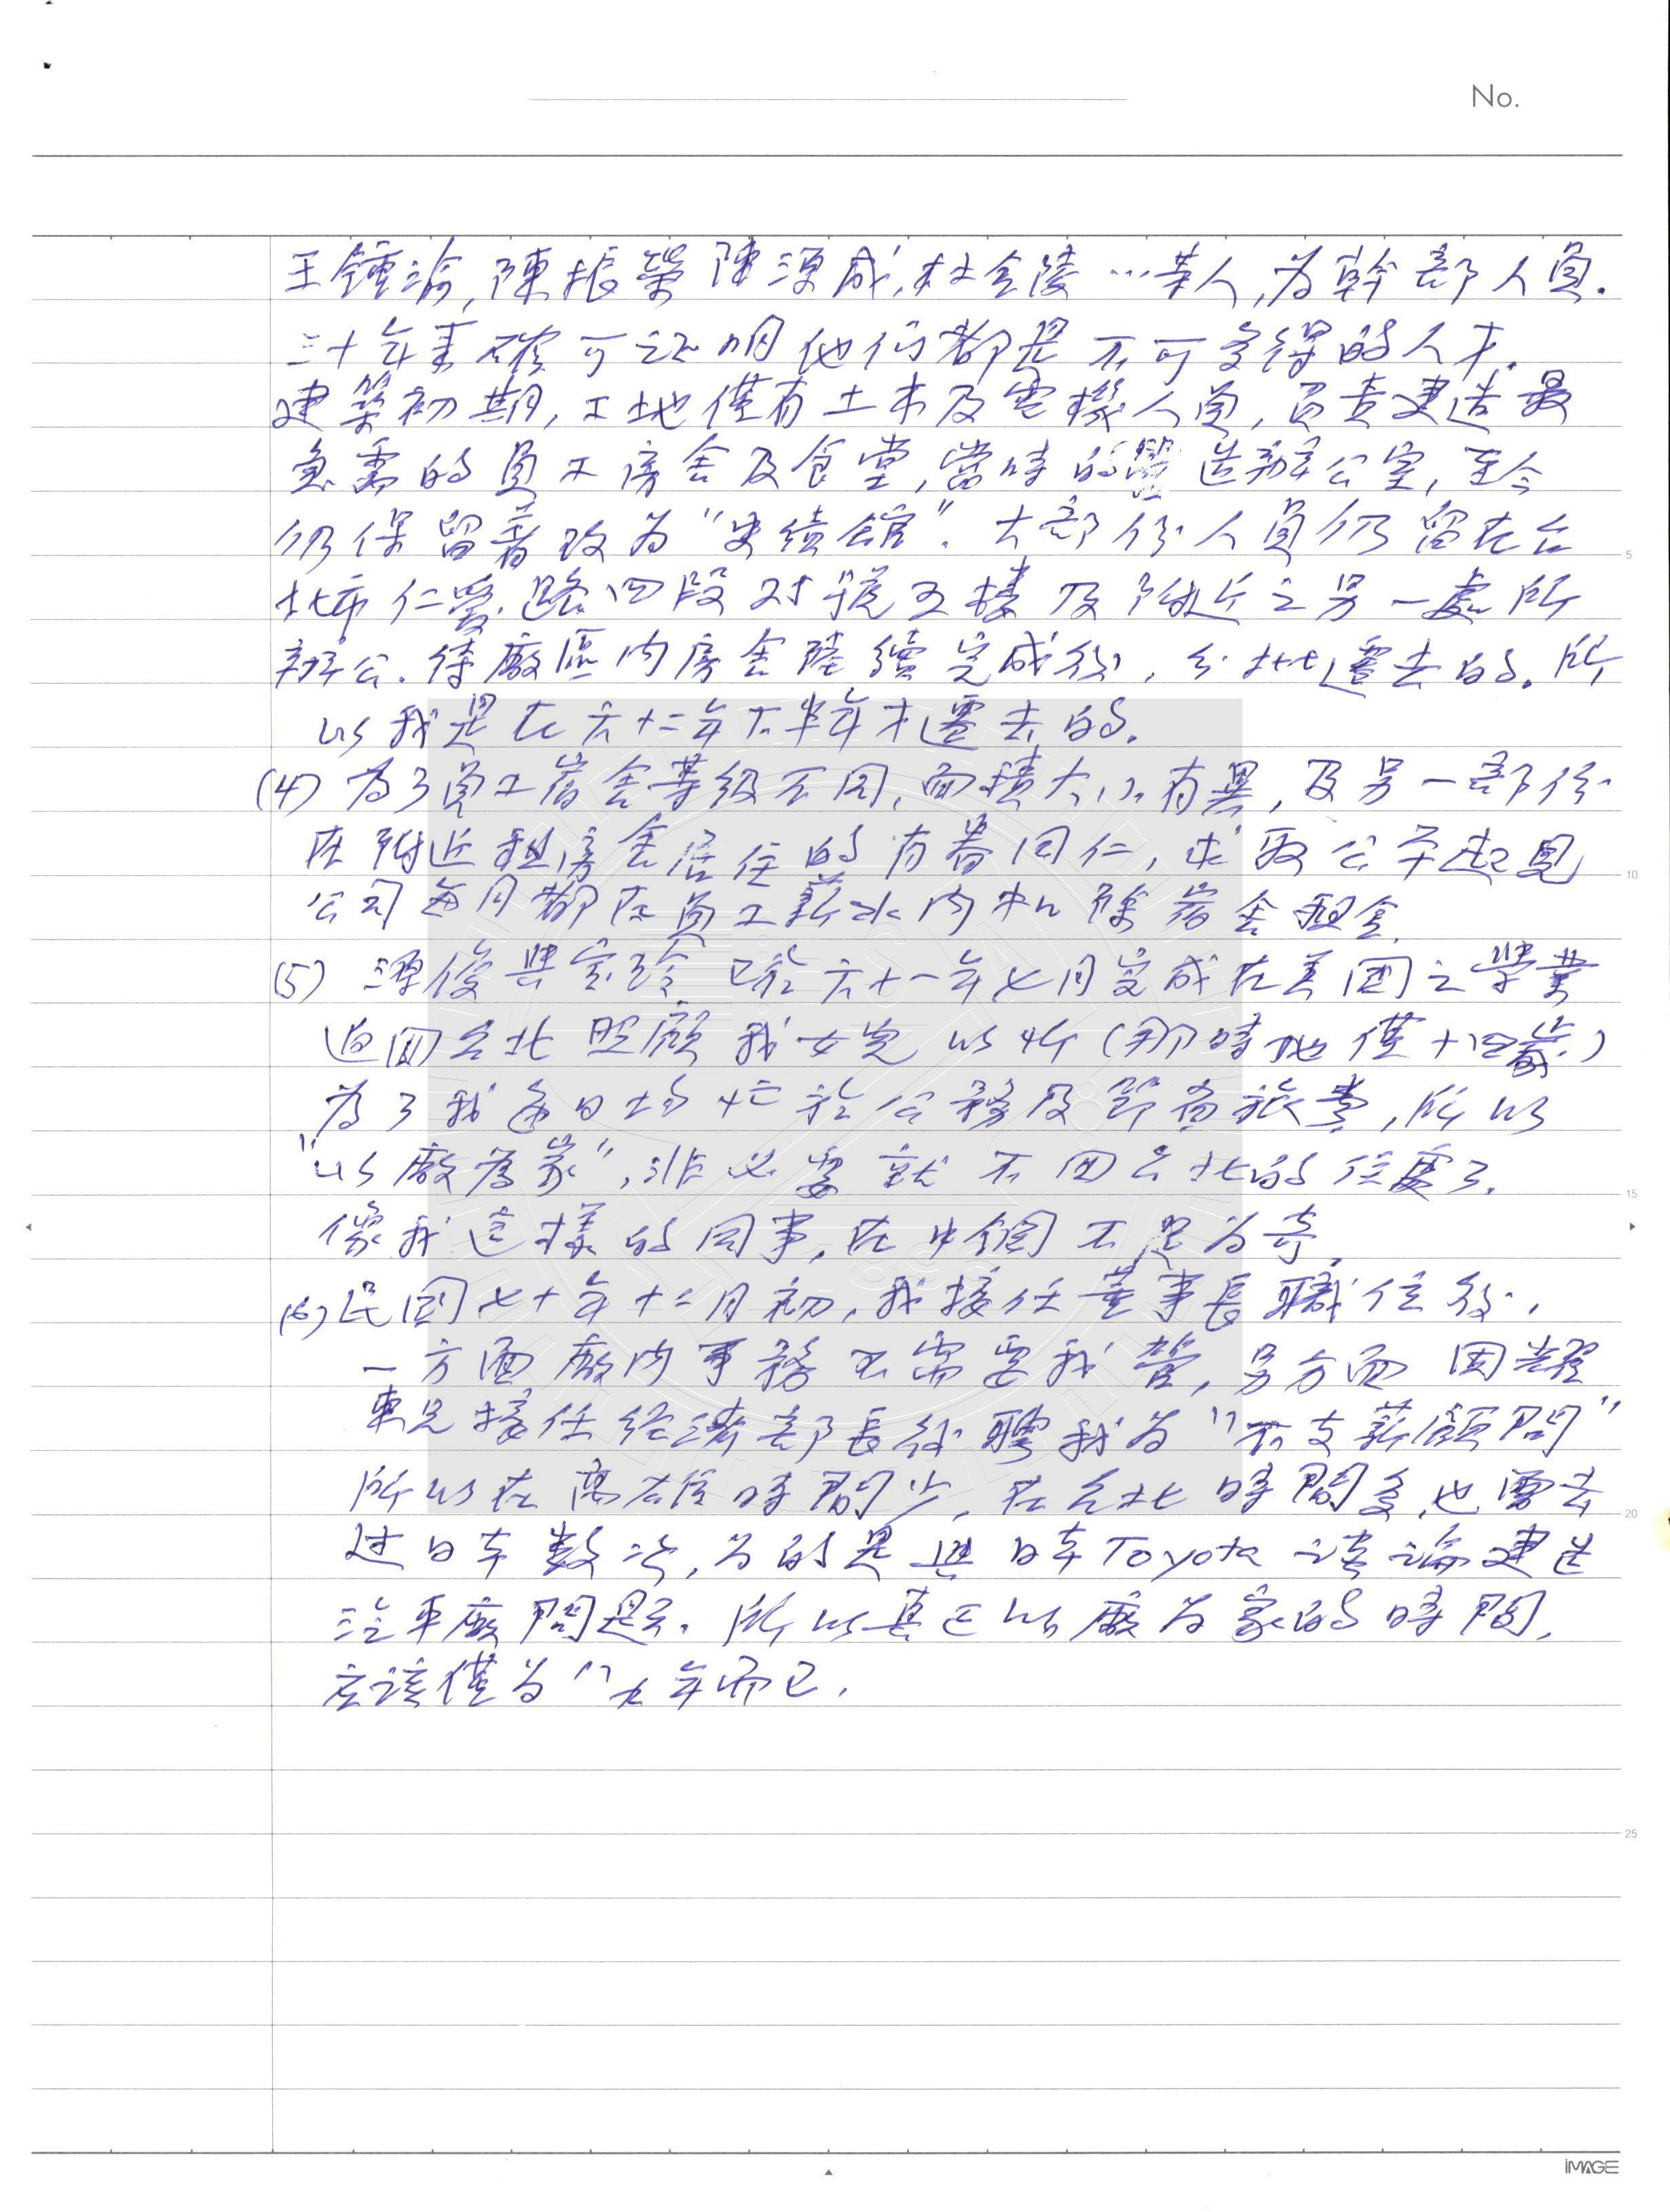 No.
王鍾渝,陳振榮 陳源成,杜金陵…等人,為幹部人員.
三十年來確可证明他们都是不可多得的人才.
建築初期,工地僅有土木及電機人員,負責建造最
急需的員工房舍及食堂,當時的營造辦公室,至今
仍保留著改為"史績館".大部份人員仍留在台
北市仁愛路四段 对號五樓及附近之另一處所
辦公.待廠區內房舍陸續完成後,分批遷去的.所
以我是在六十二年下半年才遷去的.
(4) 為了員工宿舍等級不同,面積大小有異,及另一部份
在附近租房舍居住的有眷同仁,求取公平起見
公司每月都在員工薪水內扣除宿舍租金.
(5) 俊與 已於六十一年七月完成在美国之學業
返回台北照顧我女兒以 (那時她僅十四歲)
為了我每日均忙於公務及節省旅費,所以
"以廠為家",非必要就不回台北的住處了.
像我這樣的同事,在中鋼不足為奇.
(6) 民国七十年十二月初,我接任董事長職位後,
一方面廠內事務不需要我管,另方面因耀
東兄接任经濟部長後聘我為"不支薪顧問"
所以在高雄時間少,在台北時間多,也曾去
过日本数次,为的是與日本Toyota 讨論建造
汽車廠問題.所以真正以廠为家的時間,
应該僅为"九年而已.
5
10
15
20
25
iMAGE